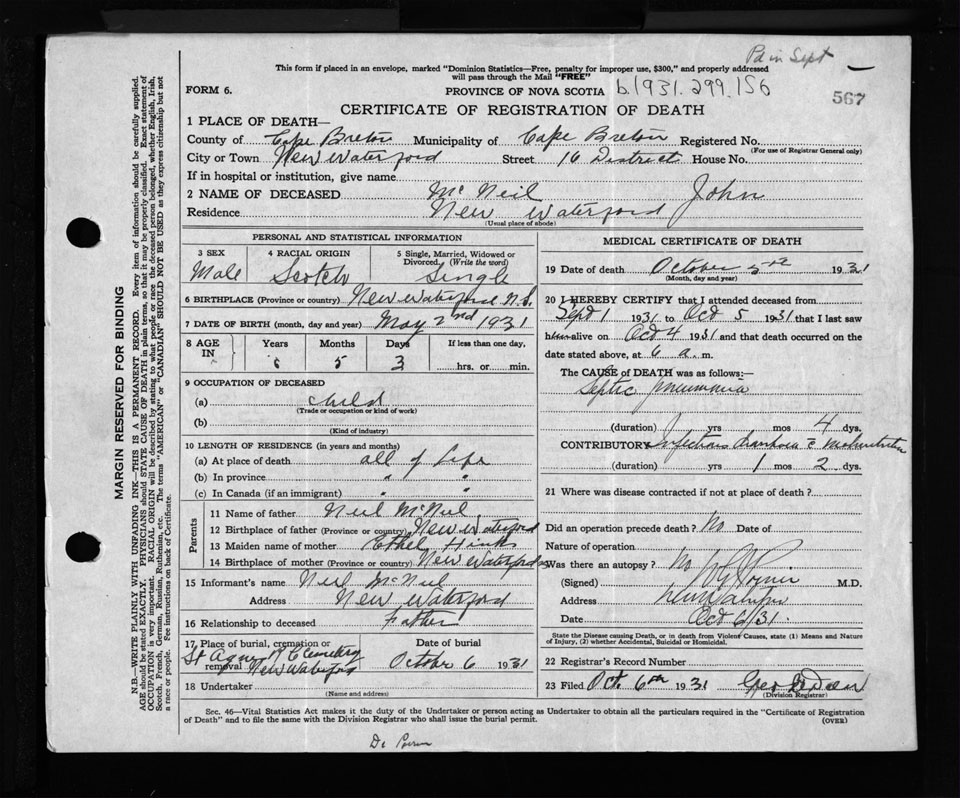 Pd in Sept
This form if placed in an envelope, marked "Dominion Statistics—Free, penalty for improper use, $300," and properly addressed
will pass through the Mail "FREE"
FORM 6. PROVINCE OF NOVA SCOTIA b.1931.299.156
567
CERTIFICATE OF REGISTRATION OF DEATH
1 PLACE OF DEATH—
County of Cape Breton Municipality of Cape Breton Registered No.
(For use of Registrar General only)
City or Town New Waterford Street 16 District House No.
If in hospital or institution, give name
2 NAME OF DECEASED McNeil John
Residence New Waterford
(Usual place of abode)
PERSONAL AND STATISTICAL INFORMATION
3 SEX 4 RACIAL ORIGIN 5 Single, Married, Widowed or
Divorced. (Write the word)
Male Scotch Single
6 BIRTHPLACE (Province or country) New Waterford N.S.
7 DATE OF BIRTH (month, day and year) May 2nd 1931
8 AGE IN Years Months Days If less than one day,
5 3 hrs. or min.
9 OCCUPATION OF DECEASED
(a) child
(Trade or occupation or kind of work)
(b)
(Kind of industry)
10 LENGTH OF RESIDENCE (in years and months)
(a) At place of death all of Life
(b) In province " "
(c) In Canada (if an immigrant) " "
Parents
11 Name of father Neil McNeil
12 Birthplace of father (Province or country) New Waterford
13 Maiden name of mother Ethel Hinks
14 Birthplace of mother (Province or country) New Waterford
15 Informant's name Neil McNeil
Address New Waterford
16 Relationship to deceased Father
17 Place of burial, cremation or
removal St Agnes Cemetery
New Waterford
Date of burial
October 6 1931
18 Undertaker
(Name and address)
MEDICAL CERTIFICATE OF DEATH
19 Date of death October 5th 1931
(Month, day and year)
20 I HEREBY CERTIFY that I attended deceased from
Sept 1 1931 to Oct 5 1931 that I last saw
him alive on Oct 4 1931 and that death occurred on the
date stated above, at 6 a. m.
The CAUSE of DEATH was as follows:—
Septic pneumonia
(duration) yrs mos 4 dys.
CONTRIBUTORY Infectious diarrhoea c̄ Malnutrition
(duration) yrs 1 mos 2 dys.
21 Where was disease contracted if not at place of death?
Did an operation precede death? No Date of
Nature of operation
Was there an autopsy? No
(Signed) M.D.
Address New Waterford
Date Oct 6/31.
State the Disease causing Death, or in death from Violent Causes, state (1) Means and Nature
of Injury, (2) whether Accidental, Suicidal or Homicidal.
22 Registrar's Record Number
23 Filed Oct. 6th 1931 Geo
(Division Registrar)
Sec. 46—Vital Statistics Act makes it the duty of the Undertaker or person acting as Undertaker to obtain all the particulars required in the "Certificate of Registration
of Death" and to file the same with the Division Registrar who shall issue the burial permit. (OVER)
MARGIN RESERVED FOR BINDING
N.B.—WRITE PLAINLY WITH UNFADING INK—THIS IS A PERMANENT RECORD. Every item of information should be carefully supplied.
AGE should be stated EXACTLY. PHYSICIANS should STATE CAUSE OF DEATH in plain terms, so that it may be properly classified. Exact statement of
OCCUPATION is very important. RACIAL ORIGIN will be described by stating to what people or race the deceased person belonged, whether English, Irish,
Scotch, French, German, Russian, Ruthenian, etc. The terms "AMERICAN" or "CANADIAN" SHOULD NOT BE USED as they express citizenship but not
a race or people. See instructions on back of Certificate.